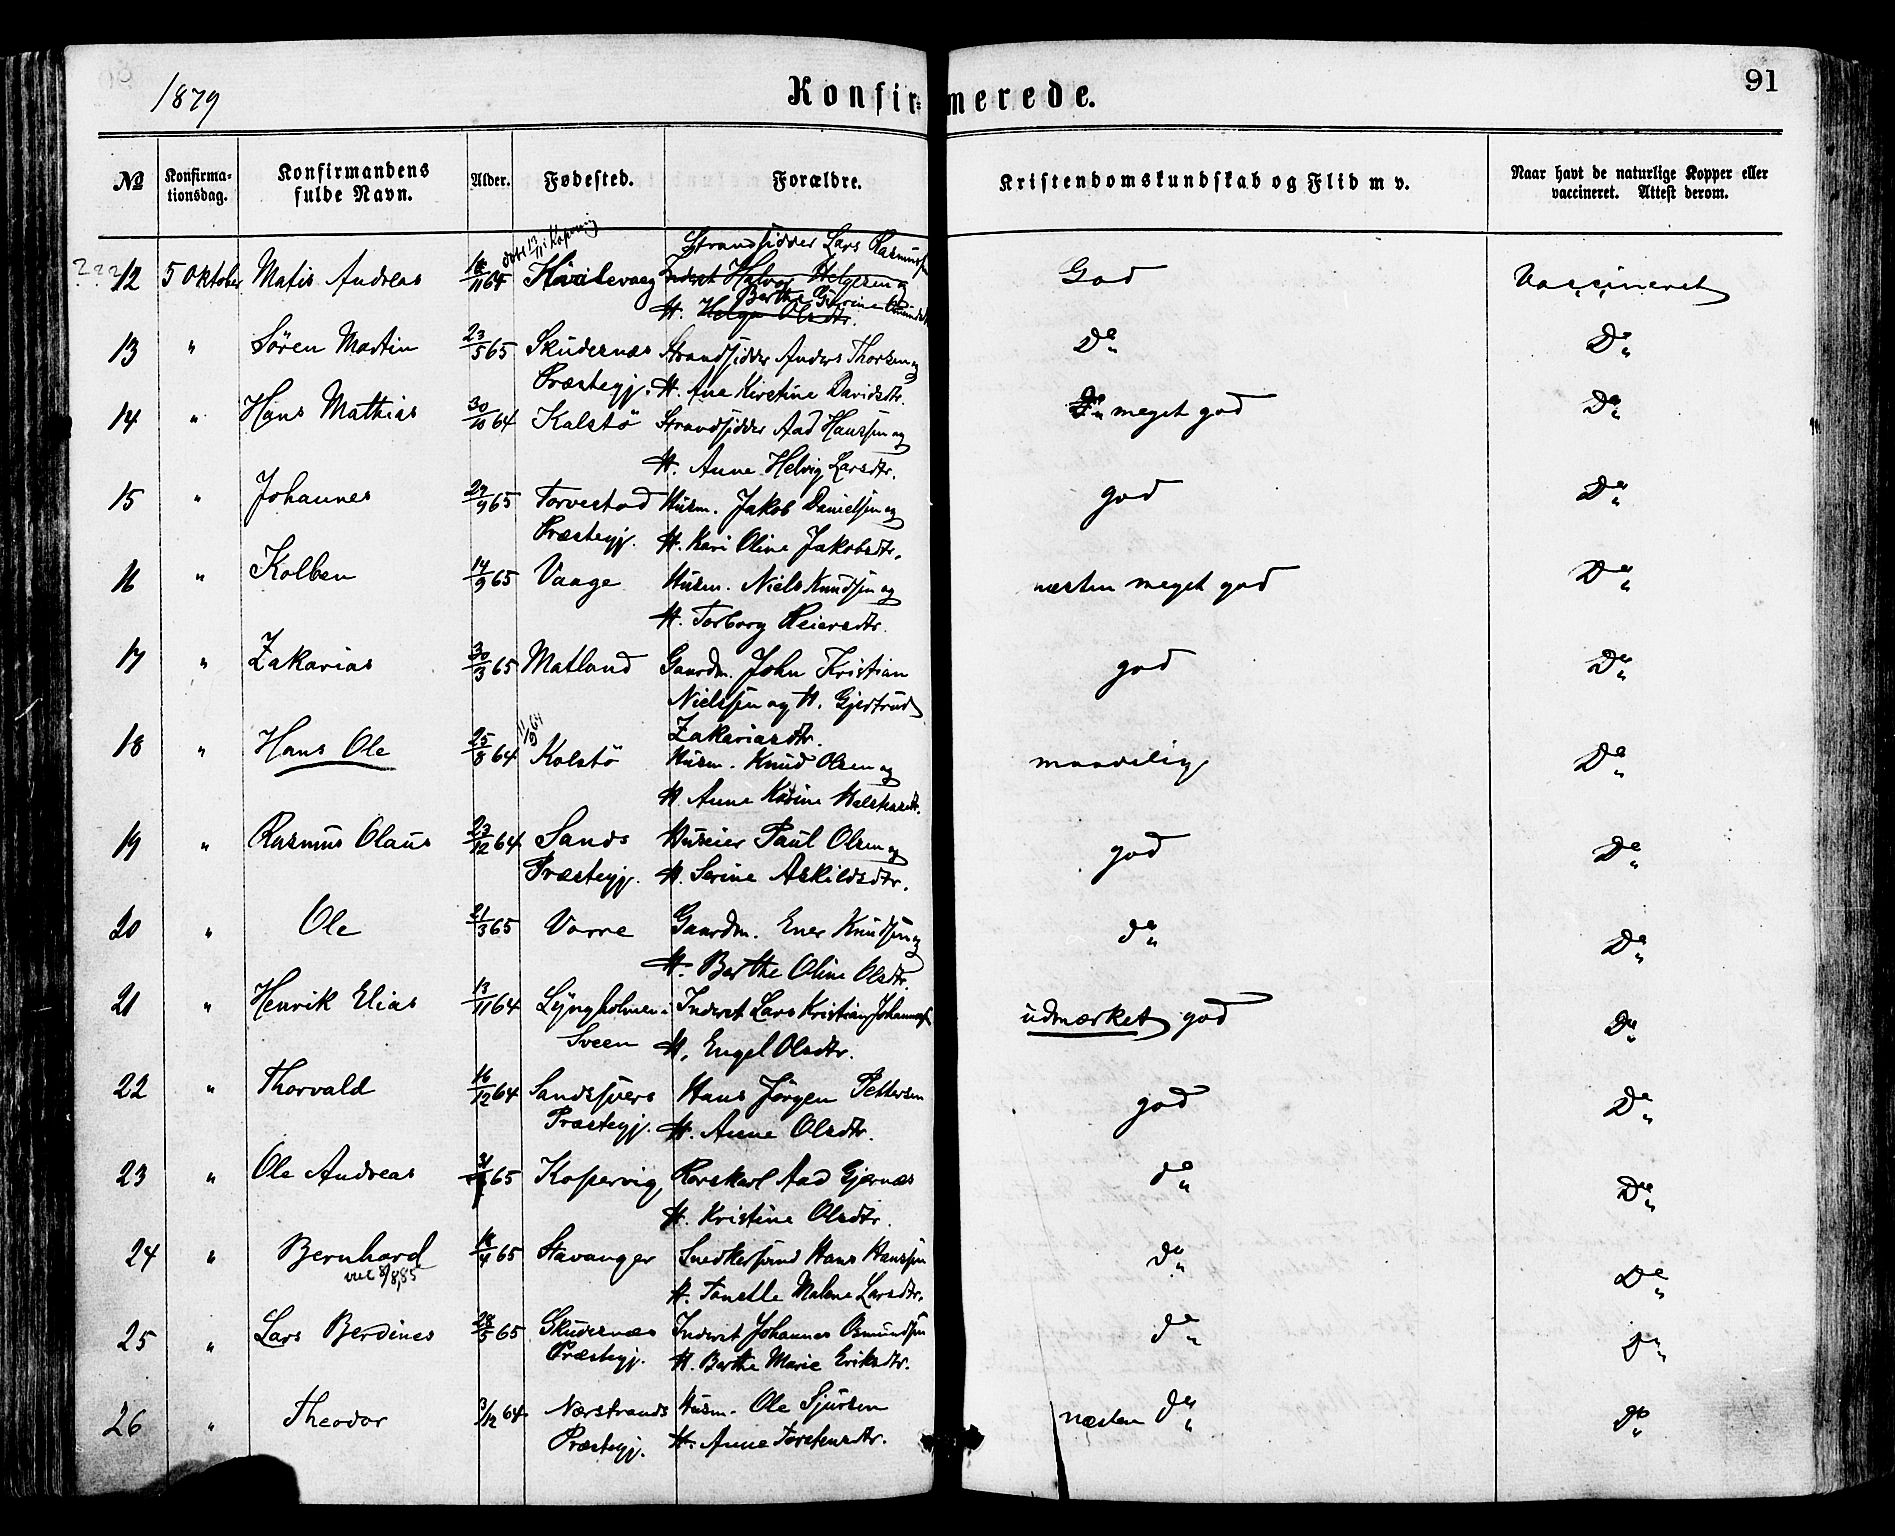 1879 Konfirmerede. 91
No Konfirmationsdag. Konfirmandens fulde Navn. Alder. Fødested. Forældre. Kristendomskundskab og Flid m v. Naar havt de naturlige Kopper eller vaccineret. Attest derom.
døbt 13/11 i Kopervig Strandsidder Lars Rasmussen
??? 12 5 Oktober Matis Andreas 11 64 Hävikevaag Inderst Halvor Helgesen og God Vaccineret
Berthe Gurine
H. Helga Olsdtr.
13 " Sören Martin 23/5 65 Skudesnæs Strandsidder Anders Thorsen og Do Do
Præstegj. H. Ane Kirstine Davidsdtr.
14 " Hans Mathias 30/10 64 Kalstö Strandsidder Aad Hanssen og meget god Do
H. Anne Helvig Larsdtr.
15 " Johannes 29/9 65 Torvestad Husm. Jakob Danielsen og god Do
Præstegj. H. Kari Oline Jakobsdtr.
16 " Kolben 14/9 65 Vaage Husm. Niels Knudsen og næsten meget god Do
H. Torborg Reiersdtr.
17 " Zakarias 30/3 65 Matland Gaardm. John Kristian god Do
Nielssen og H. Gjertrud
Zakariasdtr.
18 " Hans Ole 25/8 64 11/9 64 Kolstö Husm. Knud Olsen og maadelig Do
H. Anne Karine
19 " Rasmus Olaus 23/12 64 Sands Huseier Paul Olsen og god Do
Præstegj. H. Serine Askildsdtr.
20 " Ole 21/3 65 Vorre Gaardm. Ener Knudsen og do Do
H. Berthe Oline Olsdtr.
21 " Henrik Elias 13/11 64 Lyngholmen i Inderst Lars Kristian Johannesen udmærket god Do
Sveen H. Engel Olsdtr.
22 " Thorvald 16/12 64 Sandsfjære Hans Jörgen Pettersen god Do
Præstegj. H. Anne Olsdtr.
23 " Ole Andreas 65 Kopervig Rorskarl Aad Gjernæs do Do
H. Kristine Olsdtr.
24 " Bernhard 65 Stavanger Snedkersvend Hans Hanssen do Do
8/8,85 H. Tonette Malene Larsdtr.
25 " Lars Berdines 28/5 65 Skudesnæs Inderst Johannes Osmundsen do Do
Præstegj. H. Berthe Marie Eriksdtr.
26 " Theodor 3/12 64 Nærstrands Husm. Ole Sjursen næsten do do
Præstegj. H. Anne Torstensdtr.